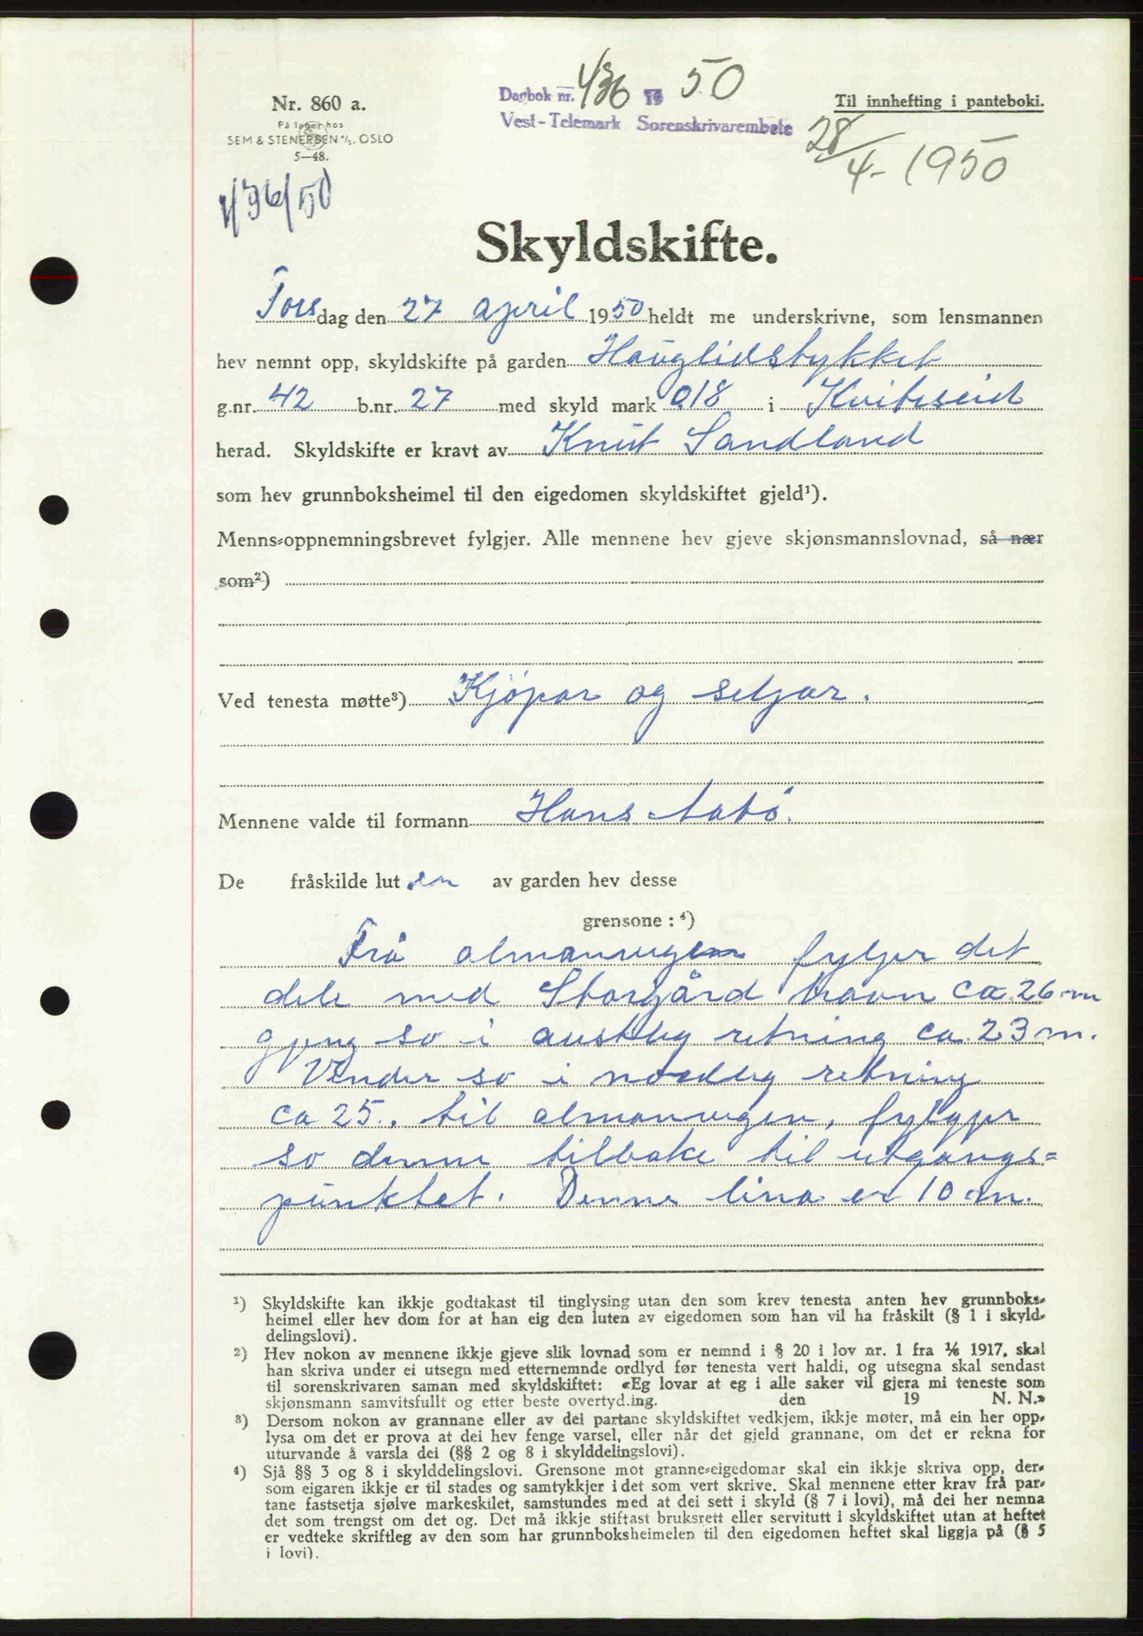 Dagbok nr. 436 19 50
Vest-Telemark Sorenskrivarembete
Nr. 860 a.
På lager hos
SEM & STENERSEN A/S. OSLO
5—48.
436/50
Til innhefting i panteboki.
28/4-1950
Skyldskifte.
Torsdag den 27 april 1950 heldt me underskrivne, som lensmannen
hev nemnt opp, skyldskifte på garden Hauglidstykket
g.nr. 42 b.nr. 27 med skyld mark 018 i Kviteseid
herad. Skyldskifte er kravt av Knut Sandland
som hev grunnboksheimel til den eigedomen skyldskiftet gjeld¹).
Menns-oppnemningsbrevet fylgjer. Alle mennene hev gjeve skjønsmannslovnad, så nær
som²)
Ved tenesta møtte³) Kjöpar og seljar.
Mennene valde til formann Hans Aabö.
De fråskilde lut en av garden hev desse
grensone : ⁴)
Frå almanvegen fylgjer det
dele med Storgård travn ca. 26 m
gjeng so i austleg retning ca. 23 m.
Vender so i nordleg retning
ca 25., til almanvegen, fylgjer
so denne tilbake til utgangs=
punktet. Denne lina er 10 m.
¹) Skyldskifte kan ikkje godtakast til tinglysing utan den som krev tenesta anten hev grunnboks-
heimel eller hev dom for at han eig den luten av eigedomen som han vil ha fråskilt (§ 1 i skyld-
delingslovi).
²) Hev nokon av mennene ikkje gjeve slik lovnad som er nemnd i § 20 i lov nr. 1 fra 1/6 1917, skal
han skriva under ei utsegn med etternemnde ordlyd før tenesta vert haldi, og utsegna skal sendast
til sorenskrivaren saman med skyldskiftet: «Eg lovar at eg i alle saker vil gjera mi teneste som
skjønsmann samvitsfullt og etter beste overtyding. den 19 N. N.»
³) Dersom nokon av grannane eller av dei partane skyldskiftet vedkjem, ikkje møter, må ein her opp-
lysa om det er prova at dei hev fenge varsel, eller når det gjeld grannane, om det er rekna for
uturvande å varsla dei (§§ 2 og 8 i skylddelingslovi).
⁴) Sjå §§ 3 og 8 i skylddelingslovi. Grensone mot granne-eigedomar skal ein ikkje skriva opp, der-
som eigaren ikkje er til stades og samtykkjer i det som vert skrive. Skal mennene etter krav frå par-
tane fastsetja sjølve markeskilet, samstundes med at dei sett i skyld (§ 7 i lovi), må dei her nemna
det som trengst om det og. Det må ikkje stiftast bruksrett eller servitutt i skyldskiftet utan at heftet
er vedteke skriftleg av den som har grunnboksheimelen til den eigedomen heftet skal liggja på (§ 5
i lovi).